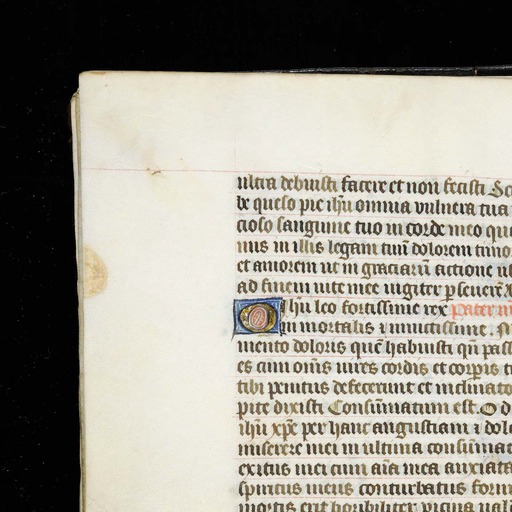 ultra debuisti facere et non fecisti Sc
be queso pie ihu omnia vulnera tua
cioso sanguine tuo in corde meo que
nus in illis legam tuu dolorem timo
et amorem ut in graciaru actione
ad finem vite mee iugiter pseuere
O ihu leo fortissime rex Pater n
immortalis & inuictissime. M
mento doloris que habuisti qn pass
es cum oms uires cordis et corpis t
tibi penitus defecerunt et inclinato
pite dixisti Consumatum est. O d
ihu xpe per hanc angustiam & dolo
miserere mei in ultima consumac
exitus mei cum aia mea anxiata
spiritus meus conturbatus fuerit
mortis erit horribiliter